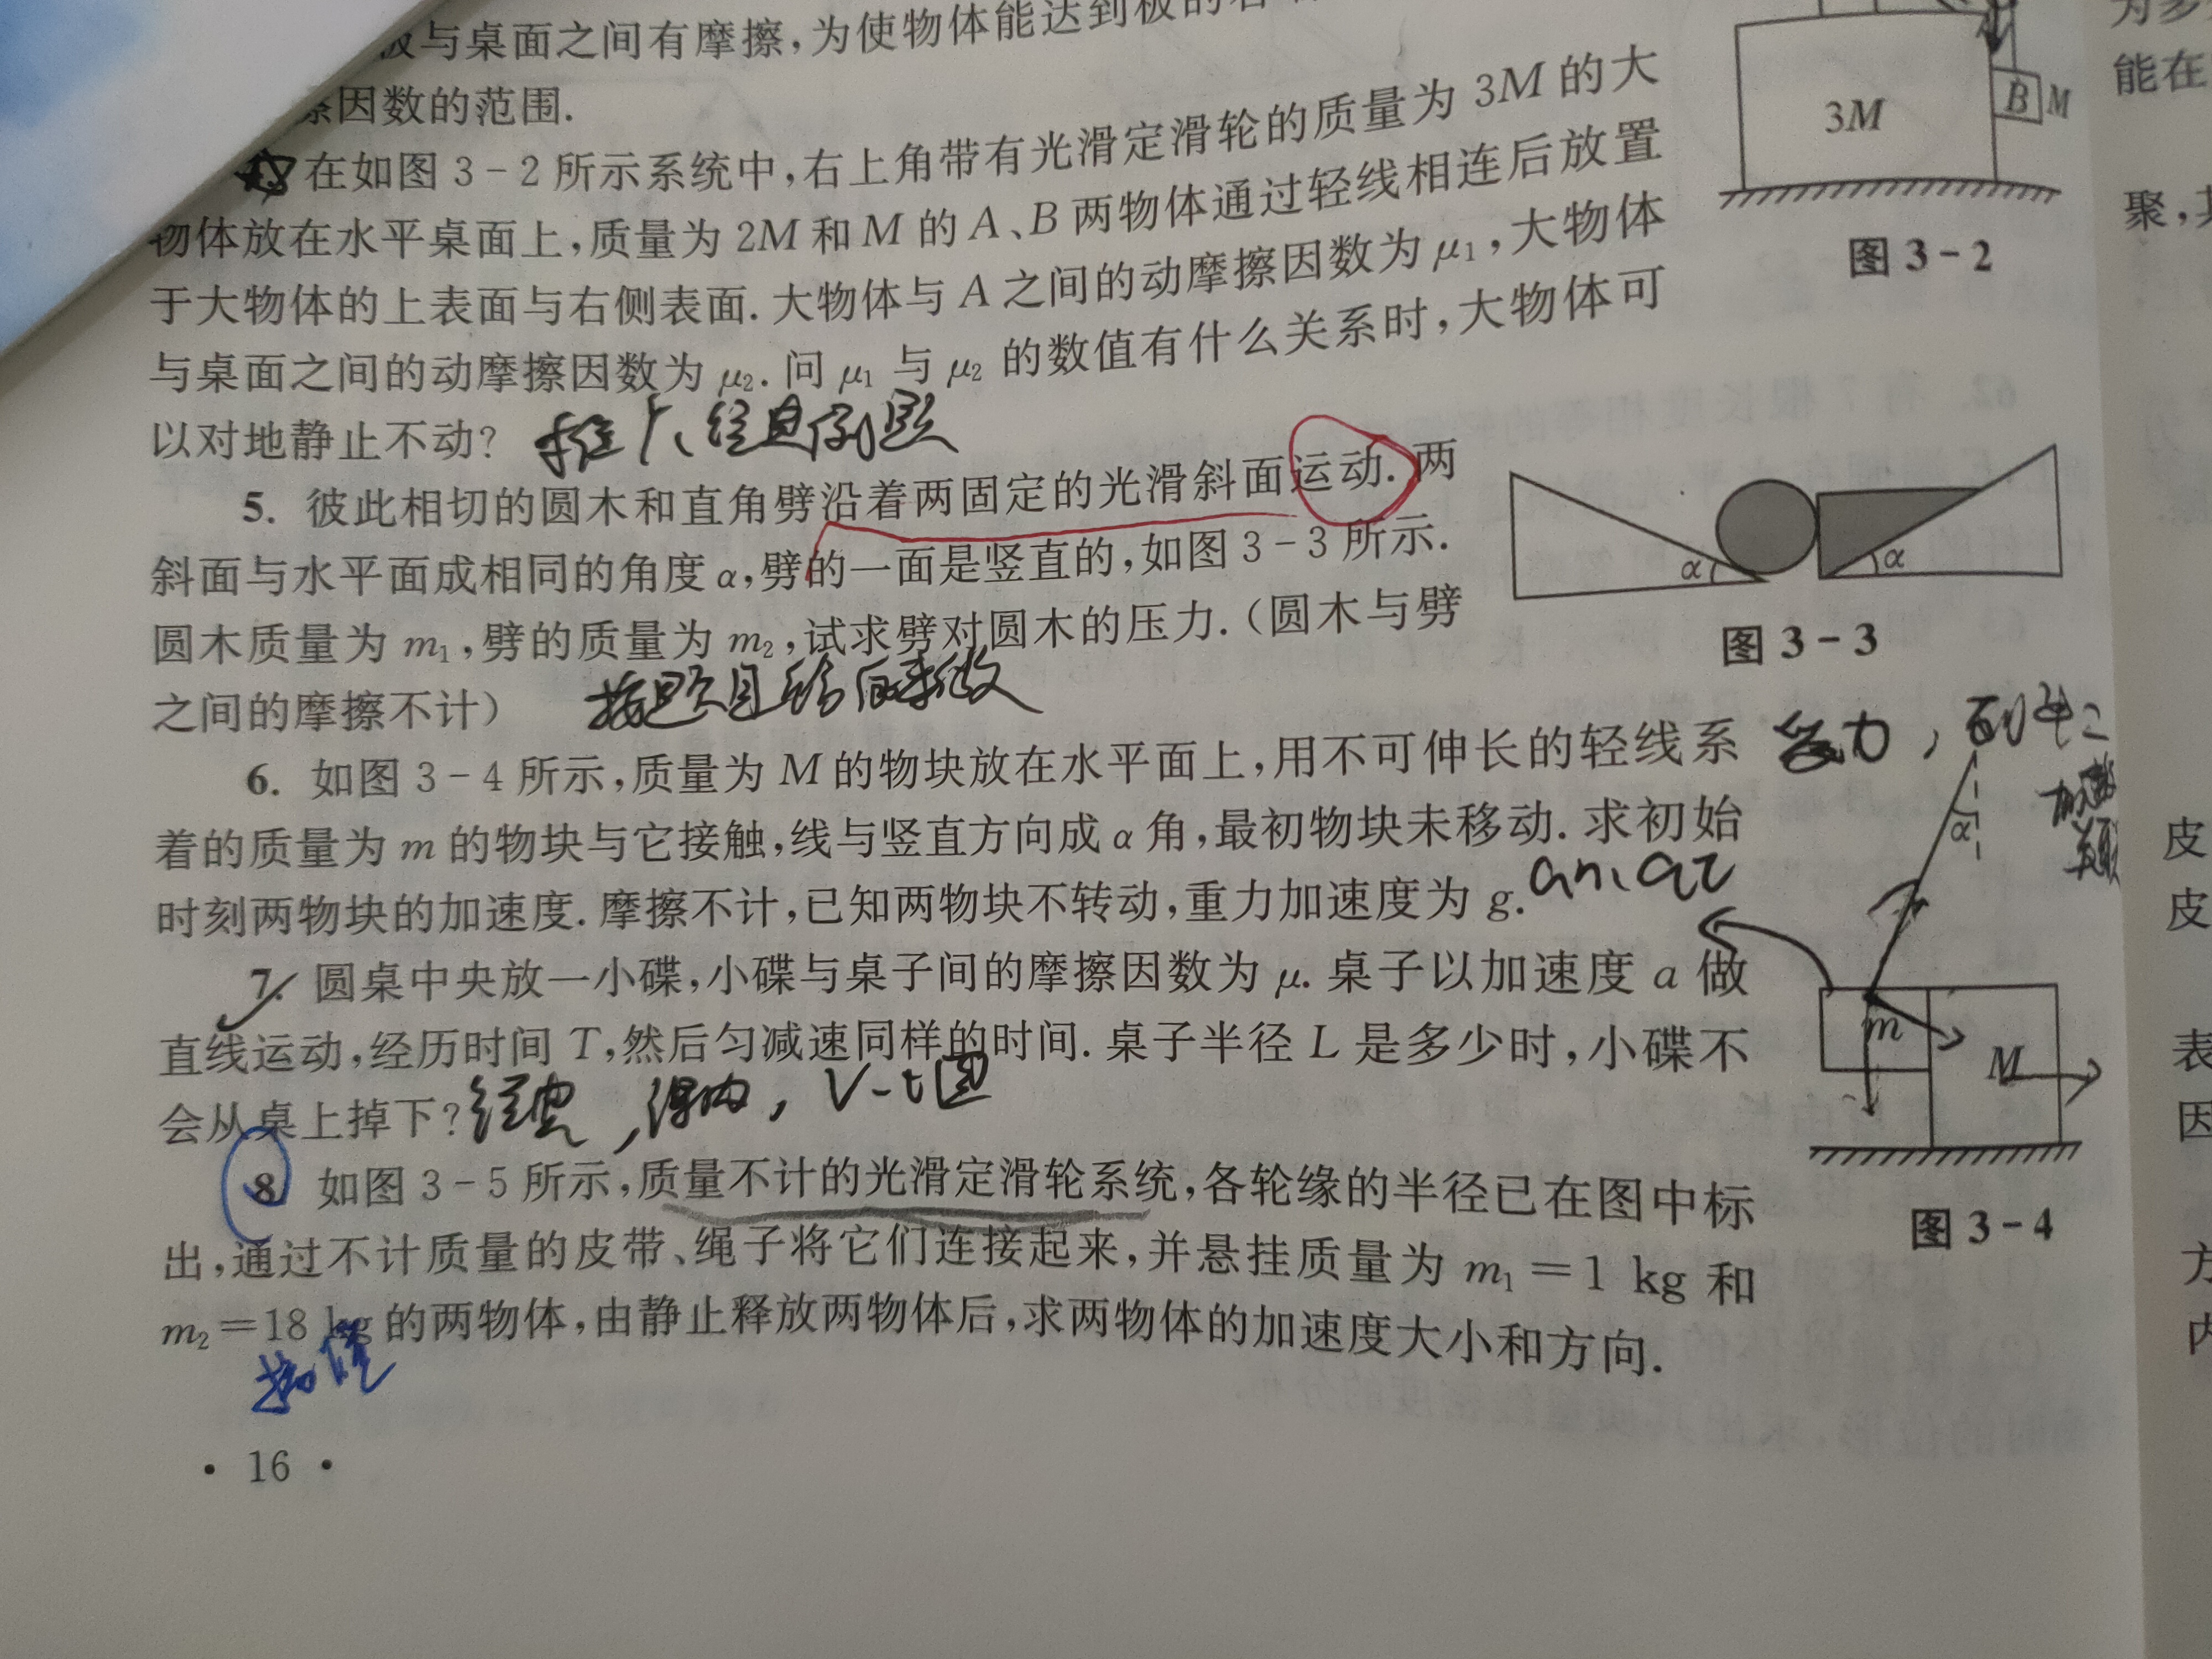 板与桌面之间有摩擦,为使物体能达到板的右
因数的范围.
在如图 3-2 所示系统中,右上角带有光滑定滑轮的质量为 3M 的大
物体放在水平桌面上,质量为 2M 和 M 的 A、B 两物体通过轻线相连后放置
于大物体的上表面与右侧表面. 大物体与 A 之间的动摩擦因数为 μ₁,大物体
与桌面之间的动摩擦因数为 μ₂. 问 μ₁ 与 μ₂ 的数值有什么关系时,大物体可
以对地静止不动?
3M
B
M
图 3-2
5. 彼此相切的圆木和直角劈沿着两固定的光滑斜面运动. 两
斜面与水平面成相同的角度 α,劈的一面是竖直的,如图 3-3 所示.
圆木质量为 m₁,劈的质量为 m₂,试求劈对圆木的压力.(圆木与劈
之间的摩擦不计)
α
α
图 3-3
6. 如图 3-4 所示,质量为 M 的物块放在水平面上,用不可伸长的轻线系
着的质量为 m 的物块与它接触,线与竖直方向成 α 角,最初物块未移动. 求初始
时刻两物块的加速度. 摩擦不计,已知两物块不转动,重力加速度为 g.
α
m
M
图 3-4
7. 圆桌中央放一小碟,小碟与桌子间的摩擦因数为 μ. 桌子以加速度 a 做
直线运动,经历时间 T,然后匀减速同样的时间. 桌子半径 L 是多少时,小碟不
会从桌上掉下?
V-t图
8. 如图 3-5 所示,质量不计的光滑定滑轮系统,各轮缘的半径已在图中标
出,通过不计质量的皮带、绳子将它们连接起来,并悬挂质量为 m₁=1 kg 和
m₂=18 kg 的两物体,由静止释放两物体后,求两物体的加速度大小和方向.
· 16 ·
能在
聚,
皮
皮
表
因
方
内